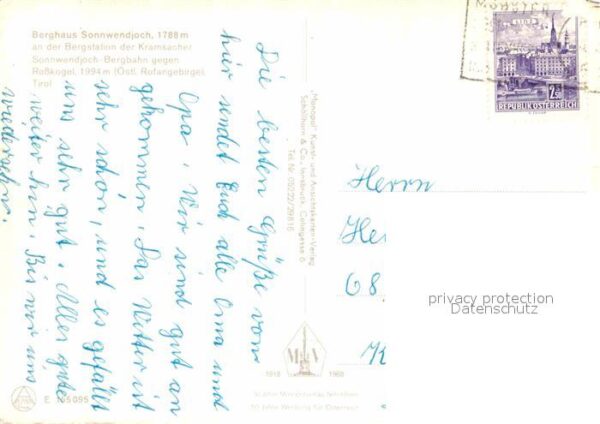 Berghaus Sonnwendjoch, 1788 m
an der Bergstation der Kramsacher
Sonnwendjoch-Bergbahn gegen
Roßkogel, 1994 m (Östl. Rofangebirge)
Tirol
Die besten Grüße von
hier sendet Euch alle Oma und
Opa. Wir sind gut an
gekommen. Das Wetter ist
sehr schön, und es gefällt
uns sehr gut. Alles gute
weiter hin. Bis wir uns
wiedersehn.
"Monopol" Kunst- und Ansichtskarten-Verlag
Schöllhorn & Co., Innsbruck,
Tel. Nr. 05222/29816
MKV
1918 1968
50 Jahre Werbung für Österreich
E 105095
LINZ
2.50
REPUBLIK ÖSTERREICH
MÜNSTER
Herrn
He
68
K
privacy protection
Datenschutz